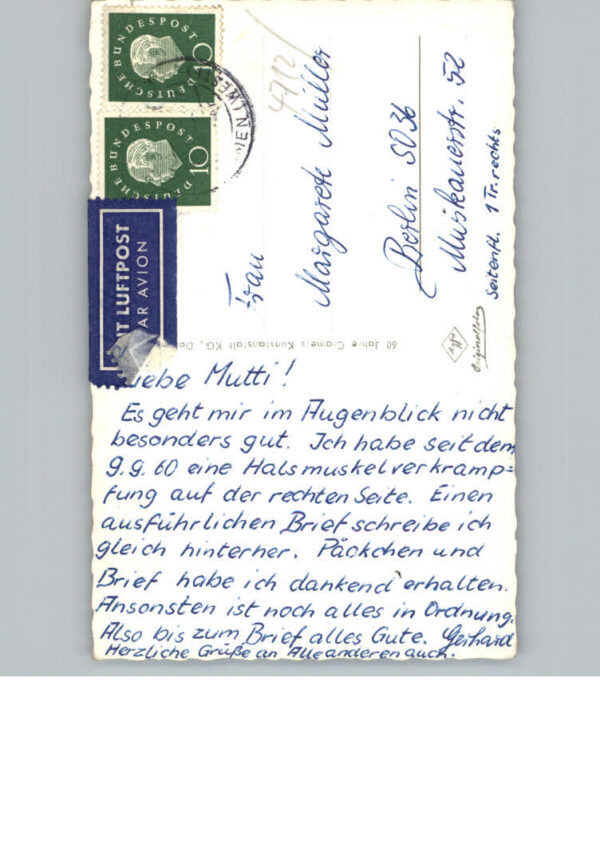 DEUTSCHE BUNDESPOST
10
DEUTSCHE BUNDESPOST
10
MIT LUFTPOST
PAR AVION
4712
Frau
Margarete Müller
Berlin SO 36
Muskauerstr. 52
Seitenfl. 1 Tr. rechts
60 Jahre Cramers Kunstanstalt KG,
Agfa
Originalfoto
Liebe Mutti!
Es geht mir im Augenblick nicht
besonders gut. Ich habe seit dem
9.9.60 eine Halsmuskelverkramp=
fung auf der rechten Seite. Einen
ausführlichen Brief schreibe ich
gleich hinterher. Päckchen und
Brief habe ich dankend erhalten.
Ansonsten ist noch alles in Ordnung.
Also bis zum Brief alles Gute. Gerhard
Herzliche Grüße an Alle anderen auch.